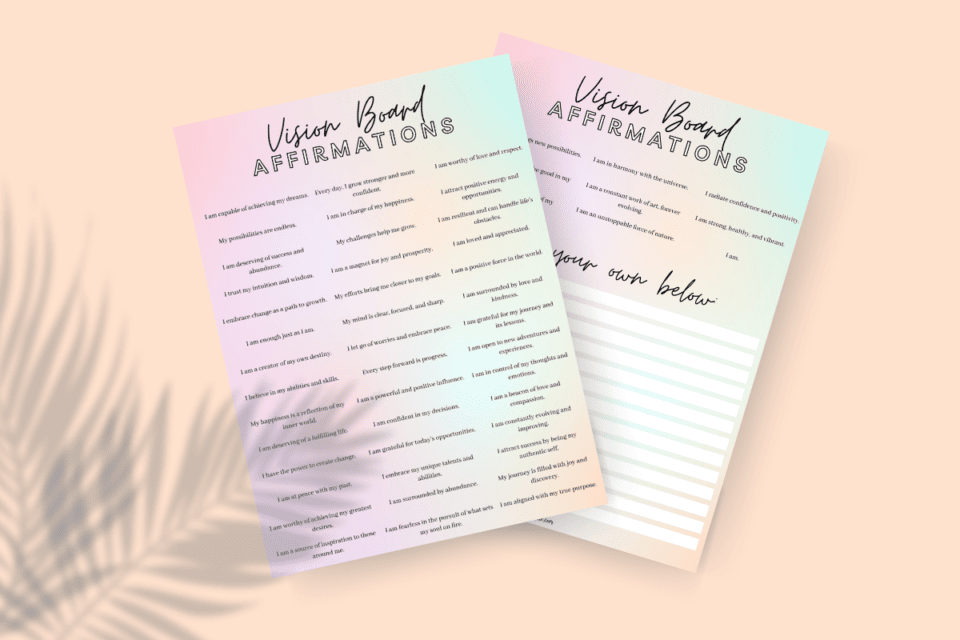 Vision Board
AFFIRMATIONS
I am capable of achieving my dreams.
My possibilities are endless.
I am deserving of success and
abundance.
I trust my intuition and wisdom.
I embrace change as a path to growth.
I am enough just as I am.
I am a creator of my own destiny.
I believe in my abilities and skills.
My happiness is a reflection of my
inner world.
I am deserving of a fulfilling life.
I have the power to create change.
I am at peace with my past.
I am worthy of achieving my greatest
desires.
I am a source of inspiration to those
around me.
Every day, I grow stronger and more
confident.
I am in charge of my happiness.
My challenges help me grow.
I am a magnet for joy and prosperity.
My efforts bring me closer to my goals.
My mind is clear, focused, and sharp.
I let go of worries and embrace peace.
Every step forward is progress.
I am a powerful and positive influence.
I am confident in my decisions.
I am grateful for today's opportunities.
I embrace my unique talents and
abilities.
I am surrounded by abundance.
I am fearless in the pursuit of what sets
my soul on fire.
I am worthy of love and respect.
I attract positive energy and
opportunities.
I am resilient and can handle life's
obstacles.
I am loved and appreciated.
I am a positive force in the world.
I am surrounded by love and
kindness.
I am grateful for my journey and
its lessons.
I am open to new adventures and
experiences.
I am in control of my thoughts and
emotions.
I am a beacon of love and
compassion.
I am constantly evolving and
improving.
I attract success by being my
authentic self.
My journey is filled with joy and
discovery.
I am aligned with my true purpose.
Vision Board
AFFIRMATIONS
new possibilities.
good in my
of my
I am in harmony with the universe.
I am a constant work of art, forever
evolving.
I am an unstoppable force of nature.
I radiate confidence and positivity.
I am strong, healthy, and vibrant.
I am.
your own below